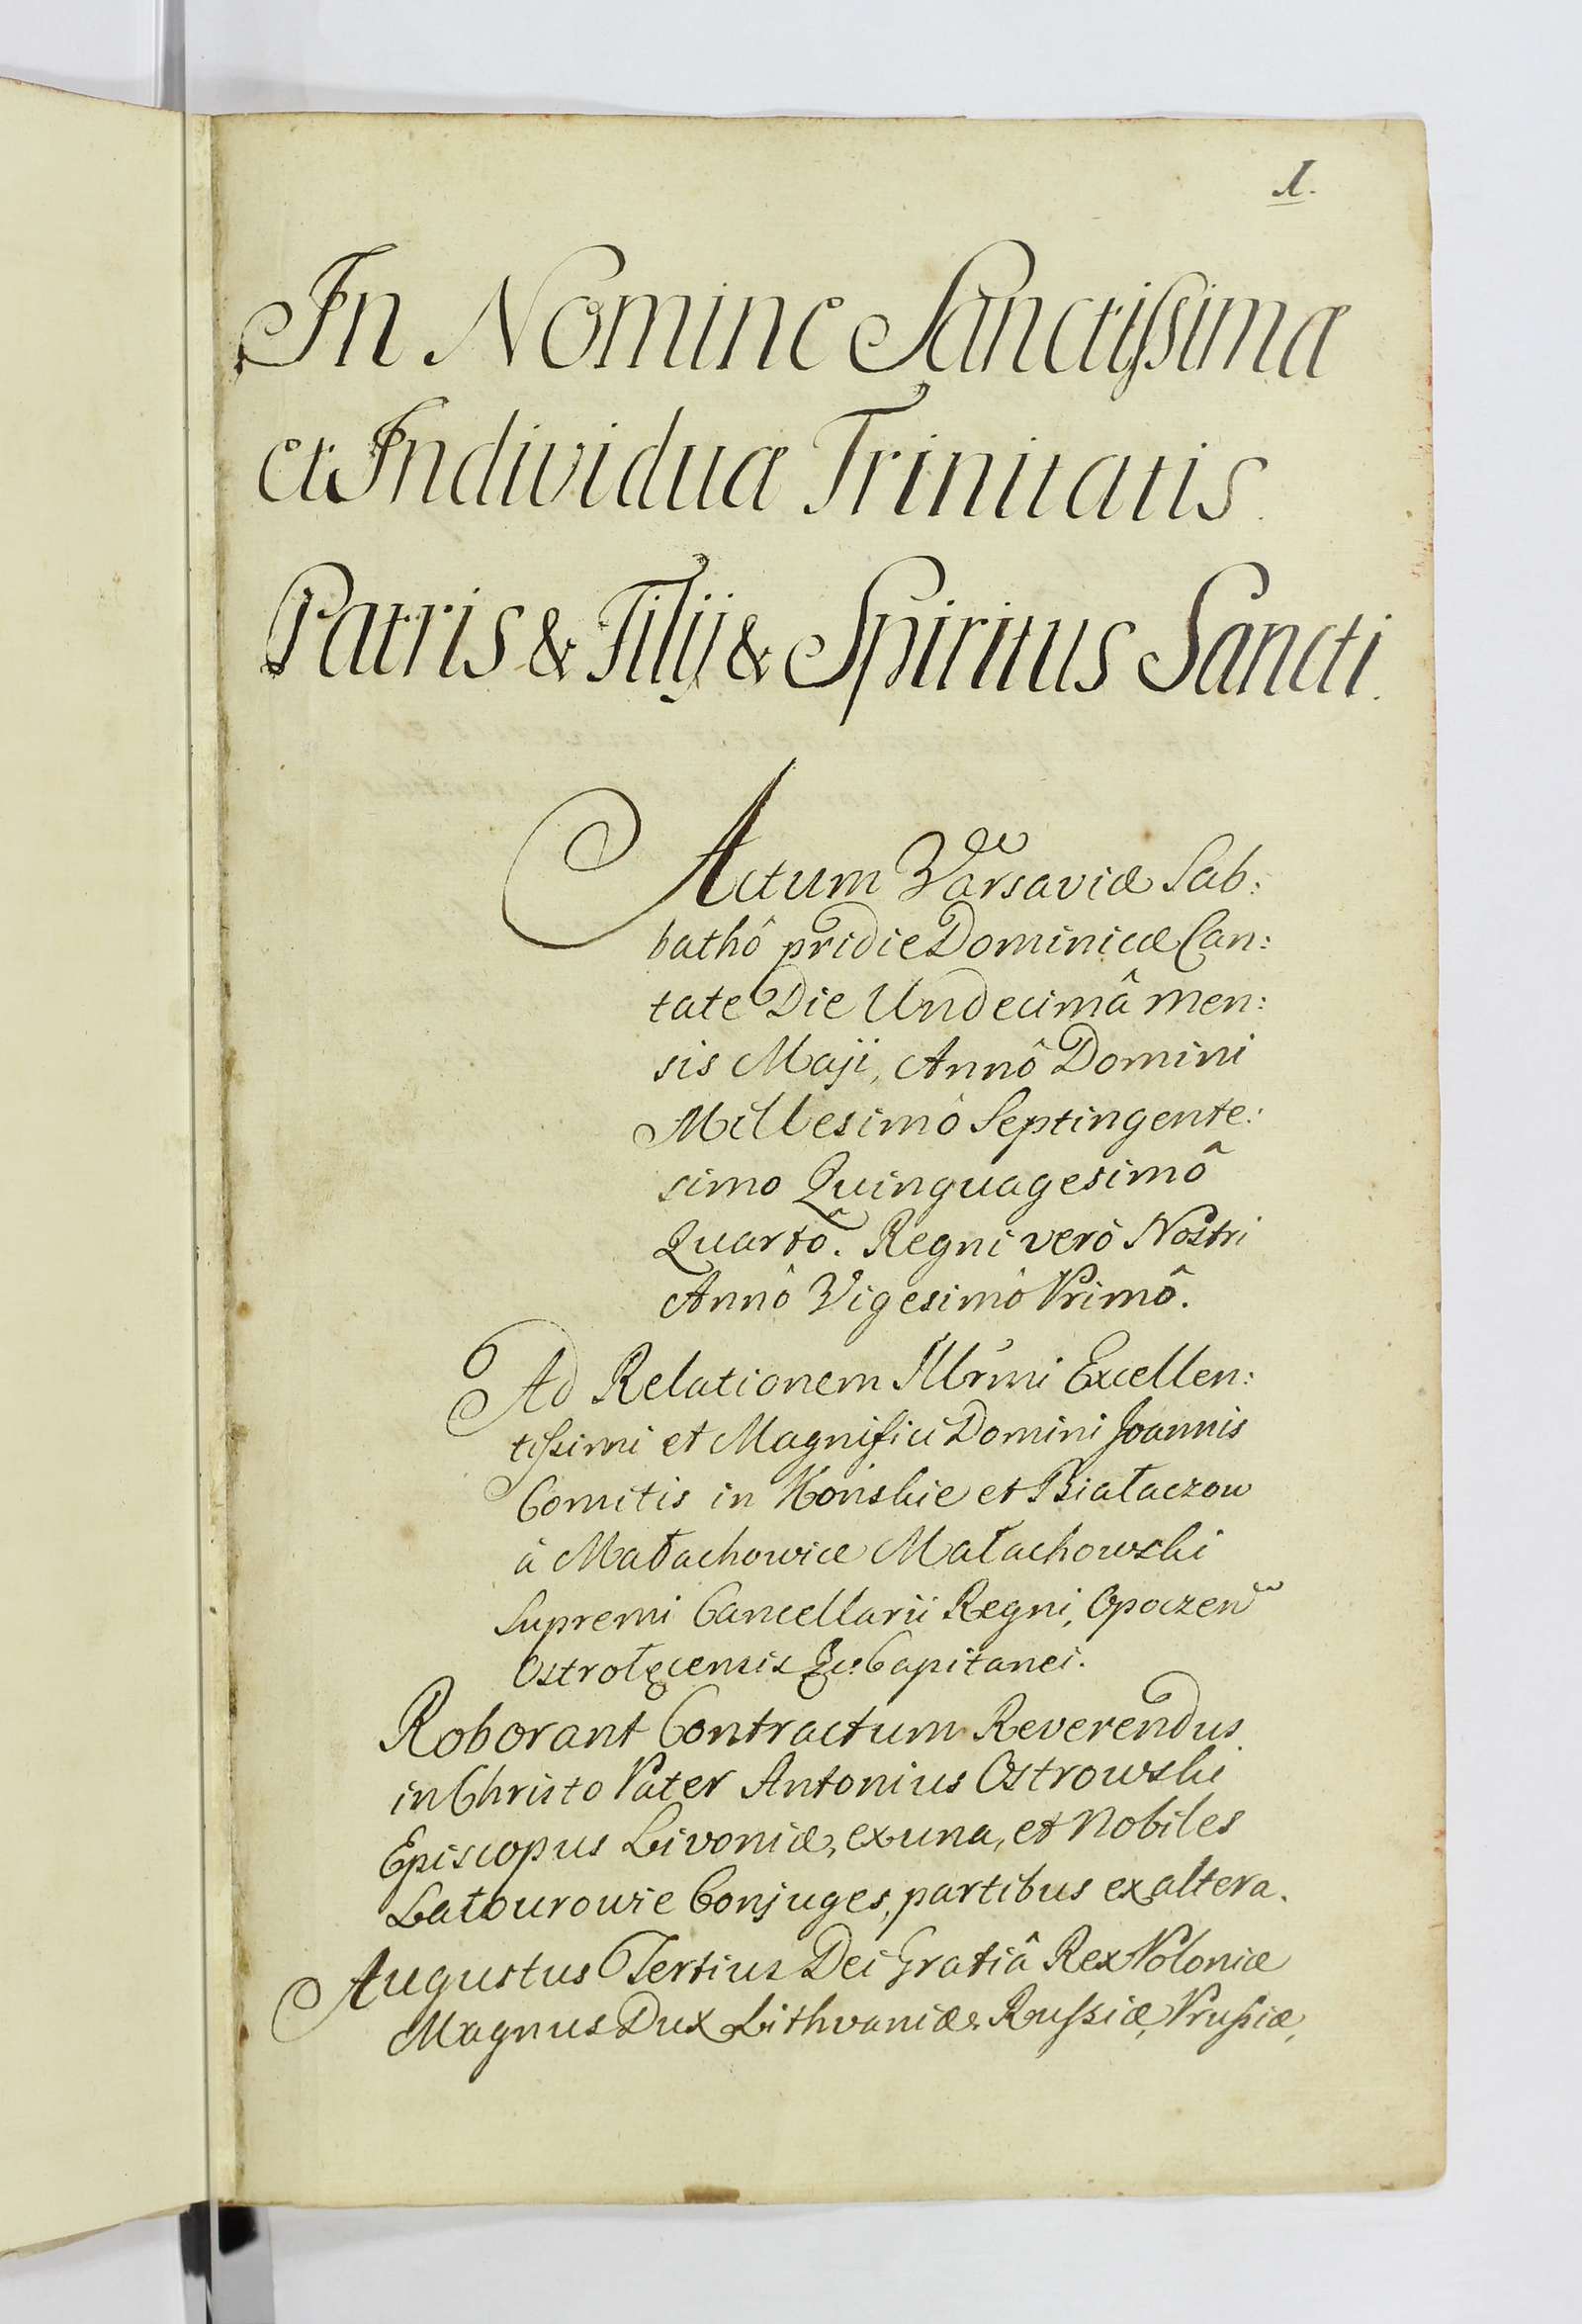 1.
In Nomine Sanctissimæ
et Individuæ Trinitatis.
Patris & Filij & Spiritus Sancti.
Actum Varsaviæ Sab:
bathô pridie Dominicæ Can:
tate Die Undecimâ Men:
sis Maji, Annô Domini
Millesimô Septingente:
simo Quinquagesimô
Quartô. Regni verò Nostri
Annô Vigesimô Primô.
Ad Relationem Illr̃mi Excellen:
tissimi et Magnifici Domini Joannis
Comitis in Końskie et Białaczow
à Małachowice Małachowski
Supremi Cancellarii Regni, Opoczen
Ostrołęcensis &c: Capitanei.
Roborant Contractum Reverendus
in Christo Pater Antonius Ostrowski
Episcopus Livoniæ, ex una, et Nobiles
Latourowie Conjuges, partibus ex altera.
Augustus Tertius Dei Gratiâ Rex Poloniæ
Magnus Dux Lithvaniæ, Russiæ, Prussiæ,